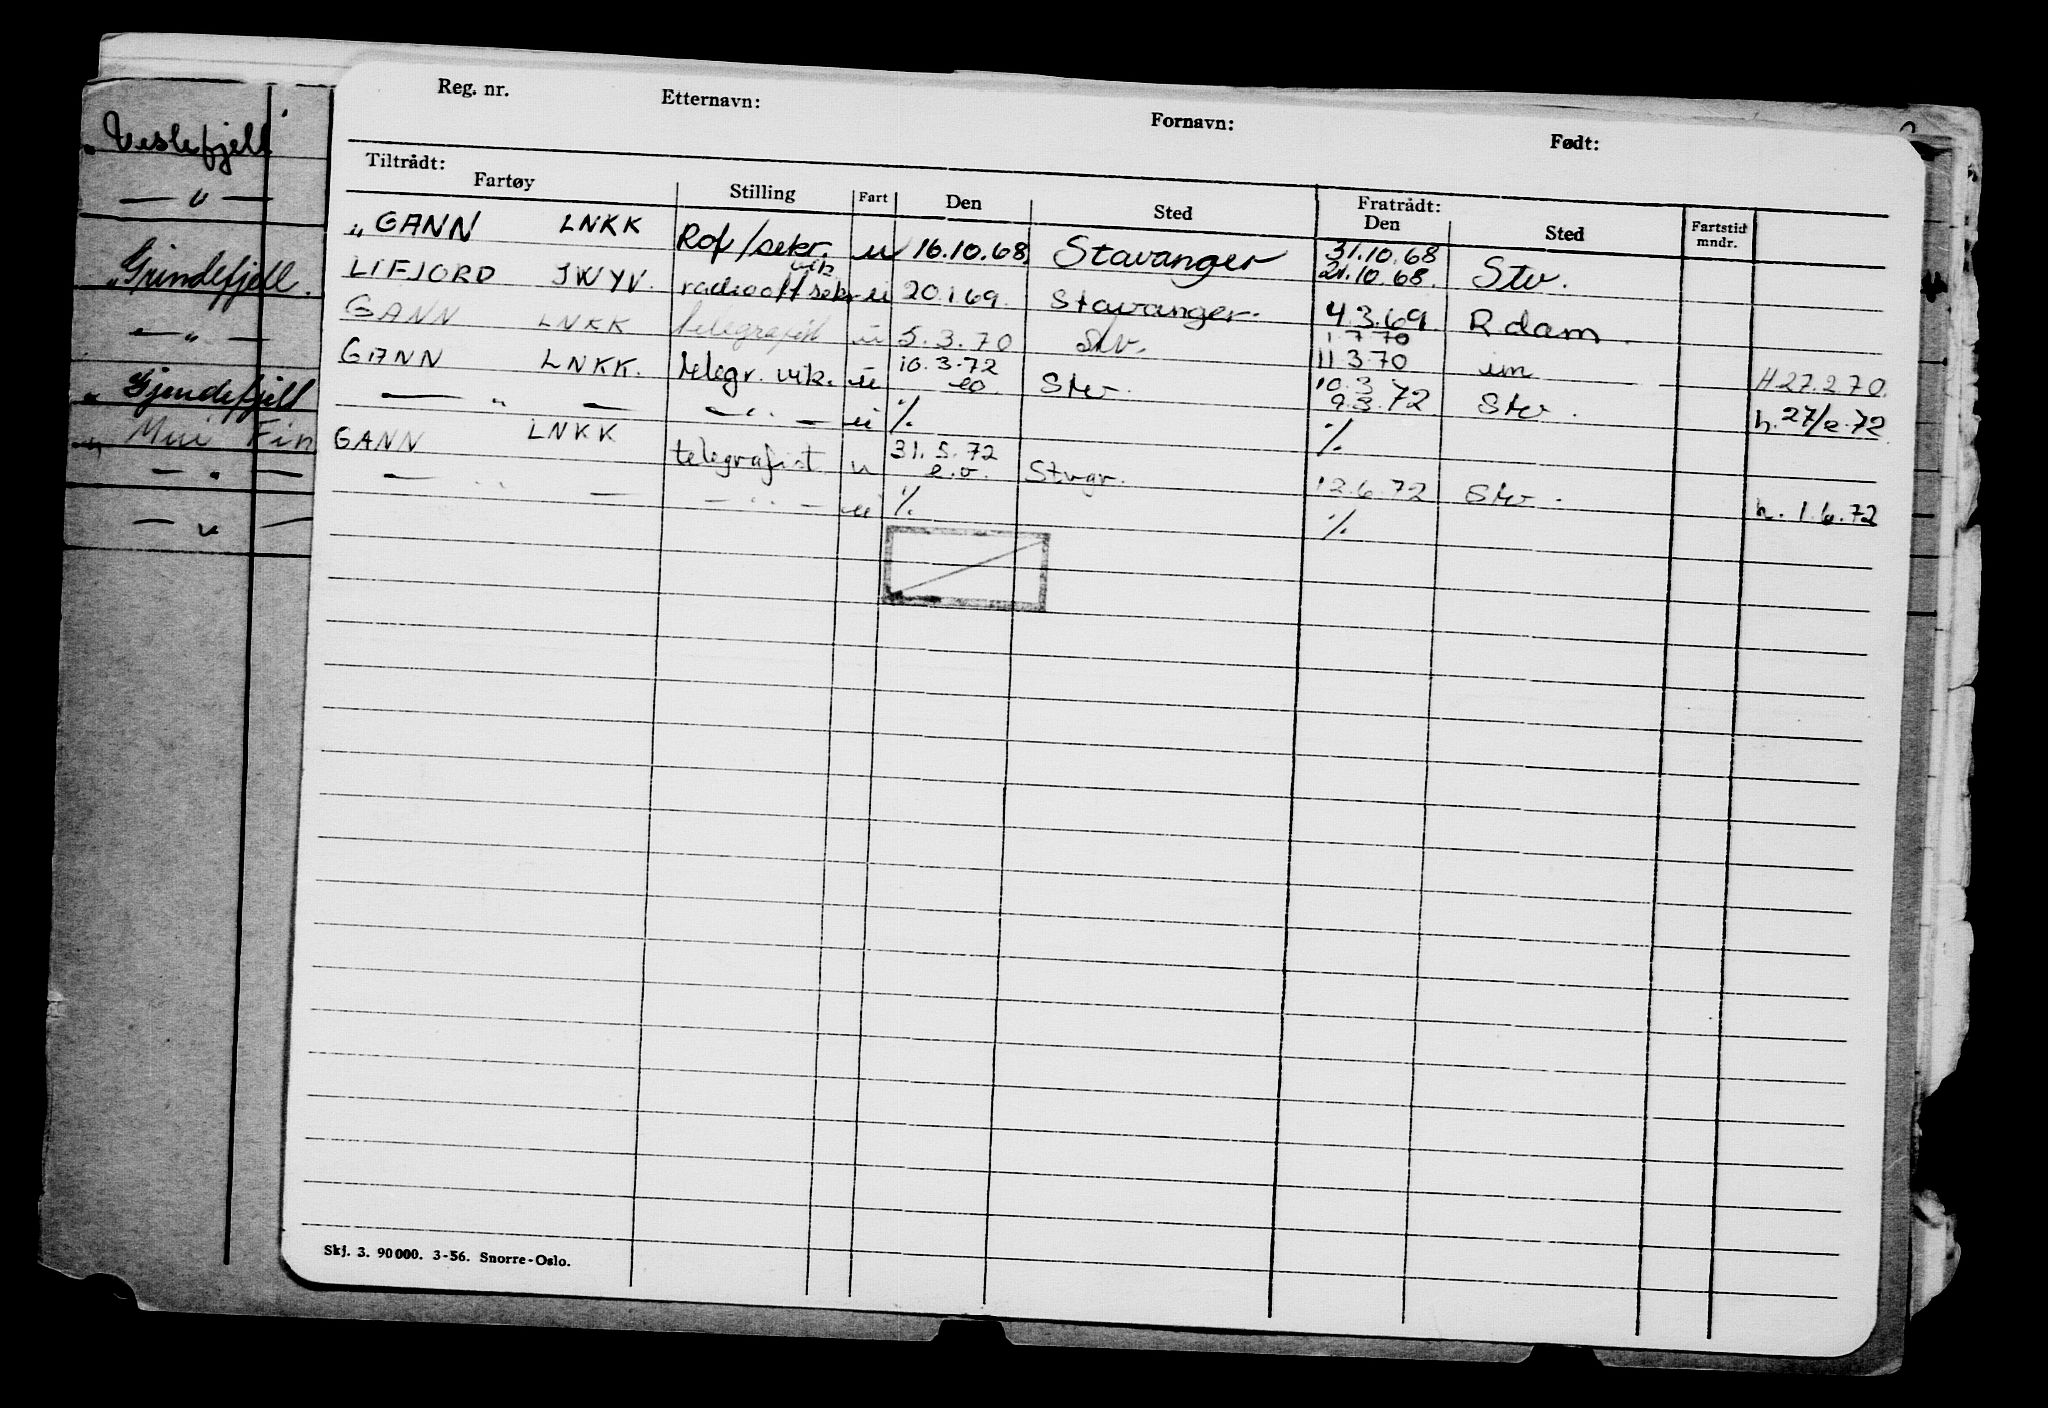 Reg. nr. Etternavn: Fornavn: Født:
Tiltrådt: Fratrådt:
Fartøy Stilling Fart Den Sted Den Sted Fartstid mndr.
„ GANN LNKK Rof/sekr. u 16.10.68. Stavanger 31.10.68
21.10.68. Stv.
LIFJORD JWYV. radiooff sekr vik. u 20.1.69. Stavanger. 4.3.69 R dam.
GANN LNKK telegrafist u 5.3.70 Stv. 1.7.70
11.3.70 um H 27.2.70.
GANN LNKK. telegr. vik. u 10.3.72
eo Stv. 10.3
9.3.72 Stv. h. 27/2.72
— „ — — „ — u % %
GANN LNKK telegrafist u 31.5.72
e.o. Stvgr. 12.6.72 Stv. h. 1.6.72
— „ — — „ — u % %
Skj. 3. 90000. 3-56. Snorre-Oslo.
„ Veslefjell
— „ —
„ Grindefjell.
— „ —
„ Gjendefjell
„ Fin
— „ —
— „ —